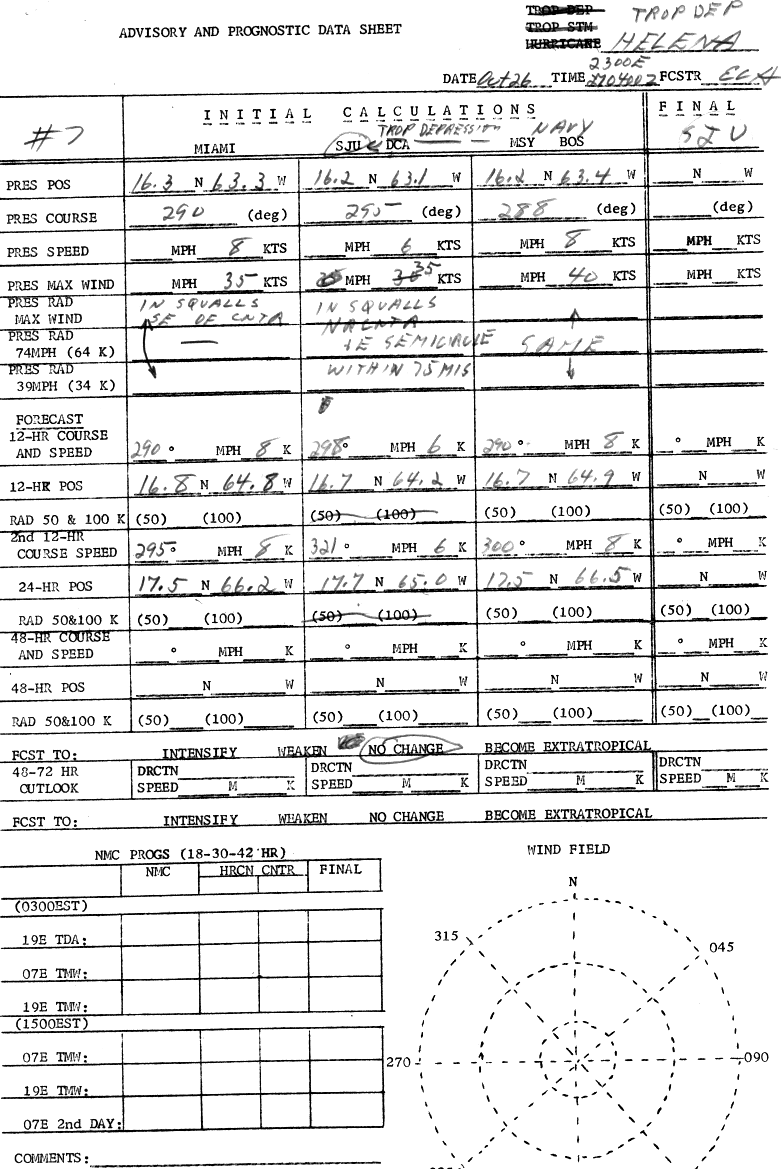 TROP DEP TROP DEP
ADVISORY AND PROGNOSTIC DATA SHEET TROP STM
HURRICANE HELENA
2300E
DATE Oct 26 TIME 270400Z FCSTR
INITIAL CALCULATIONS FINAL
#7 TROP DEPRESSION NAVY SJU
MIAMI SJU DCA MSY BOS
PRES POS 16.3 N 63.3 W 16.2 N 63.1 W 16.2 N 63.4 W N W
PRES COURSE 290 (deg) 295 (deg) 288 (deg) (deg)
PRES SPEED MPH 8 KTS MPH 6 KTS MPH 8 KTS MPH KTS
PRES MAX WIND MPH 35 KTS MPH 35 KTS MPH 40 KTS MPH KTS
PRES RAD IN SQUALLS IN SQUALLS
MAX WIND SE OF CNTR
PRES RAD
74MPH (64 K) +E SEMICIRCLE SAME
PRES RAD WITHIN 75 MIS
39MPH (34 K)
FORECAST
12-HR COURSE
AND SPEED 290 ° MPH 8 K 298° MPH 6 K 290 ° MPH 8 K ° MPH K
12-HR POS 16.8 N 64.8 W 16.7 N 64.2 W 16.7 N 64.9 W N W
RAD 50 & 100 K (50) (100) (50) (100) (50) (100) (50) (100)
2nd 12-HR
COURSE SPEED 295° MPH 8 K 321° MPH 6 K 300° MPH 8 K ° MPH K
24-HR POS 17.5 N 66.2 W 17.7 N 65.0 W 17.5 N 66.5 W N W
RAD 50&100 K (50) (100) (50) (100) (50) (100) (50) (100)
48-HR COURSE
AND SPEED ° MPH K ° MPH K ° MPH K ° MPH K
48-HR POS N W N W N W N W
RAD 50&100 K (50) (100) (50) (100) (50) (100) (50) (100)
FCST TO: INTENSIFY WEAKEN NO CHANGE BECOME EXTRATROPICAL
48-72 HR DRCTN DRCTN DRCTN DRCTN
OUTLOOK SPEED M K SPEED M K SPEED M K SPEED M K
FCST TO: INTENSIFY WEAKEN NO CHANGE BECOME EXTRATROPICAL
NMC PROGS (18-30-42 HR) WIND FIELD
NMC HRCN CNTR FINAL
N
(0300EST)
19E TDA: 315 045
07E TMW:
19E TMW:
(1500EST)
07E TMW: 270 090
19E TMW:
07E 2nd DAY:
COMMENTS: